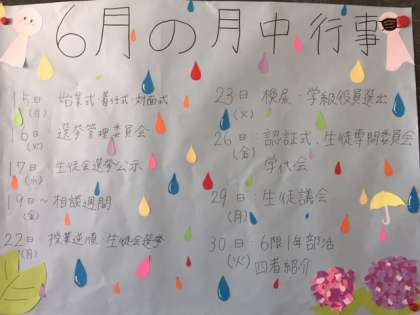 6月の月中行事
15日(月) 始業式・着任式・対面式
16日(火) 選挙管理委員会
17日(水) 生徒会選挙公示
19日(金)~相談週間
22日(月) 授業 生徒会選挙
23日(火) 検尿・学級役員選出
26日(金) 認証式・生徒専門委員会
学代会
29日(月):生徒議会
30日(火) 6限1年部活
四者紹介